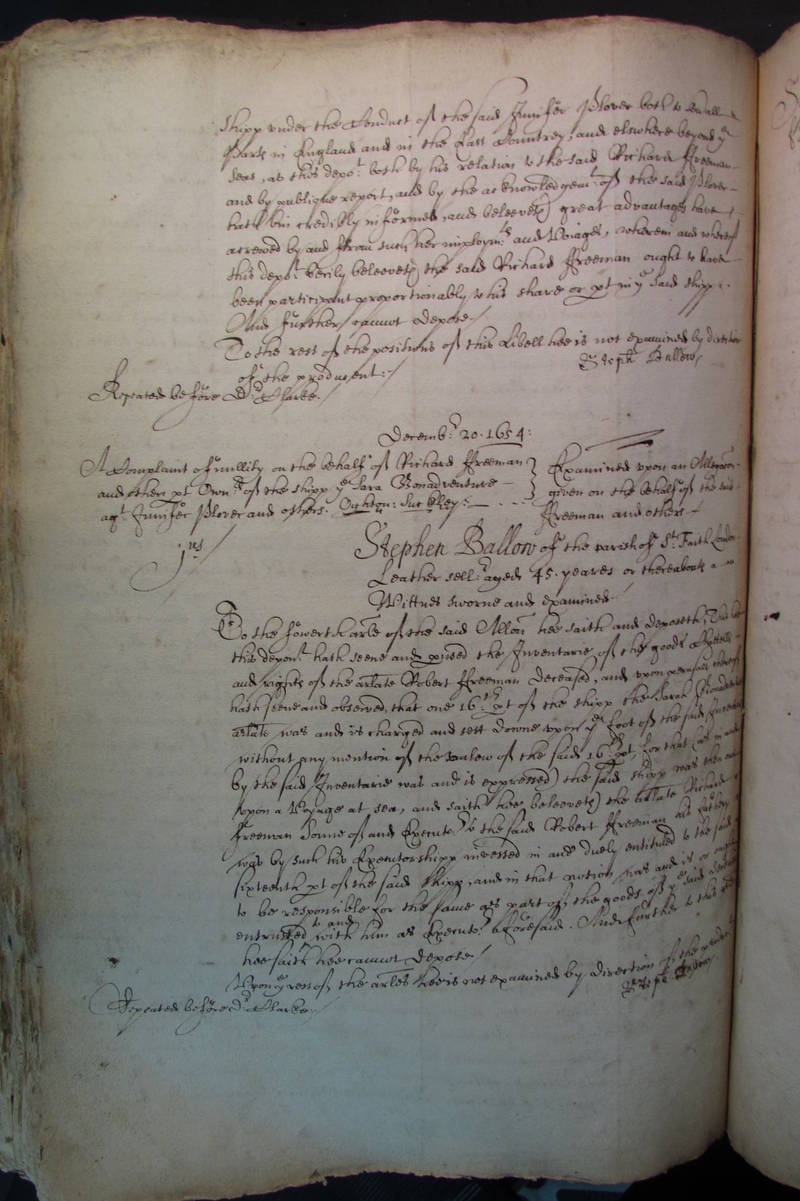 Shipp under the Conduct of the said Junifer Plover both to
Parts in England and in the East Countrey, and elsewhere beyond ye
Seas, as this depot. both by his relation to the said Richard Freeman
and by publique report, and by the acknowledgemt. of the said Plover
hath bin credibly informed, and beleeveth great advantages have
accrewed by and from such her imploymts. and Voyages, wherein and whereof
this depot. verily beleeveth the said Richard Freeman ought to have
been participant proportionably to his share or pt in ye said shipp:
And further cannot depose.
To the rest of the positions of this Libell hee is not examined by direction
of the producent:-
Steph: Ballow,
Repeated before Dr. Clarke.
Decemb:r 20. 1654:
A Complaint of nullity on the behalf of Richard Freeman
and others pt Ownrs. of the shipp ye Sara Bonadventure
agt. Junifer Plover and others. Suckley:
Examined upon an Allegacon
given on the behalf of the said
Freeman and others
jus
Stephen Ballow of the parish of St. Faith London
Leather seller aged 45. yeares or thereabouts a
Wittnes sworne and examined
To the fowerth arle of the said Allon hee saith and deposeth, That
this depont. hath seene and pused the Inventarie of the goods Chattells
and rights of the arlate Robert Freeman deceased, and upon perusall thereof
hath seene and observed, that one 16th pt of the shipp the Sarah Bonadventure
arlate was and is charged and sett downe upon ye foot of the said Inventarie
without any mention of the valew of the said 16th pt, for that (as in and
by the said Inventarie was and is expressed) the said shipp was then
upon a Voyage at sea, and saith hee beleeveth the arlate Richard
Freeman Sonne of and Executor to the said Robert Freeman his father
was by such his Executorshipp invested in and duely entituled to the said
sixteenth pt of the said shipp, and in that notion was and is or ought
to be responsible for the same as part of the goods of ye said
to and
entrusted with him as Executor. aforesaid. And further to this
hee saith hee cannot depose.
Upon ye rest of the arles hee is not examined by direction of the
Steph: Ballow
Repeated before Dr. Clarke.